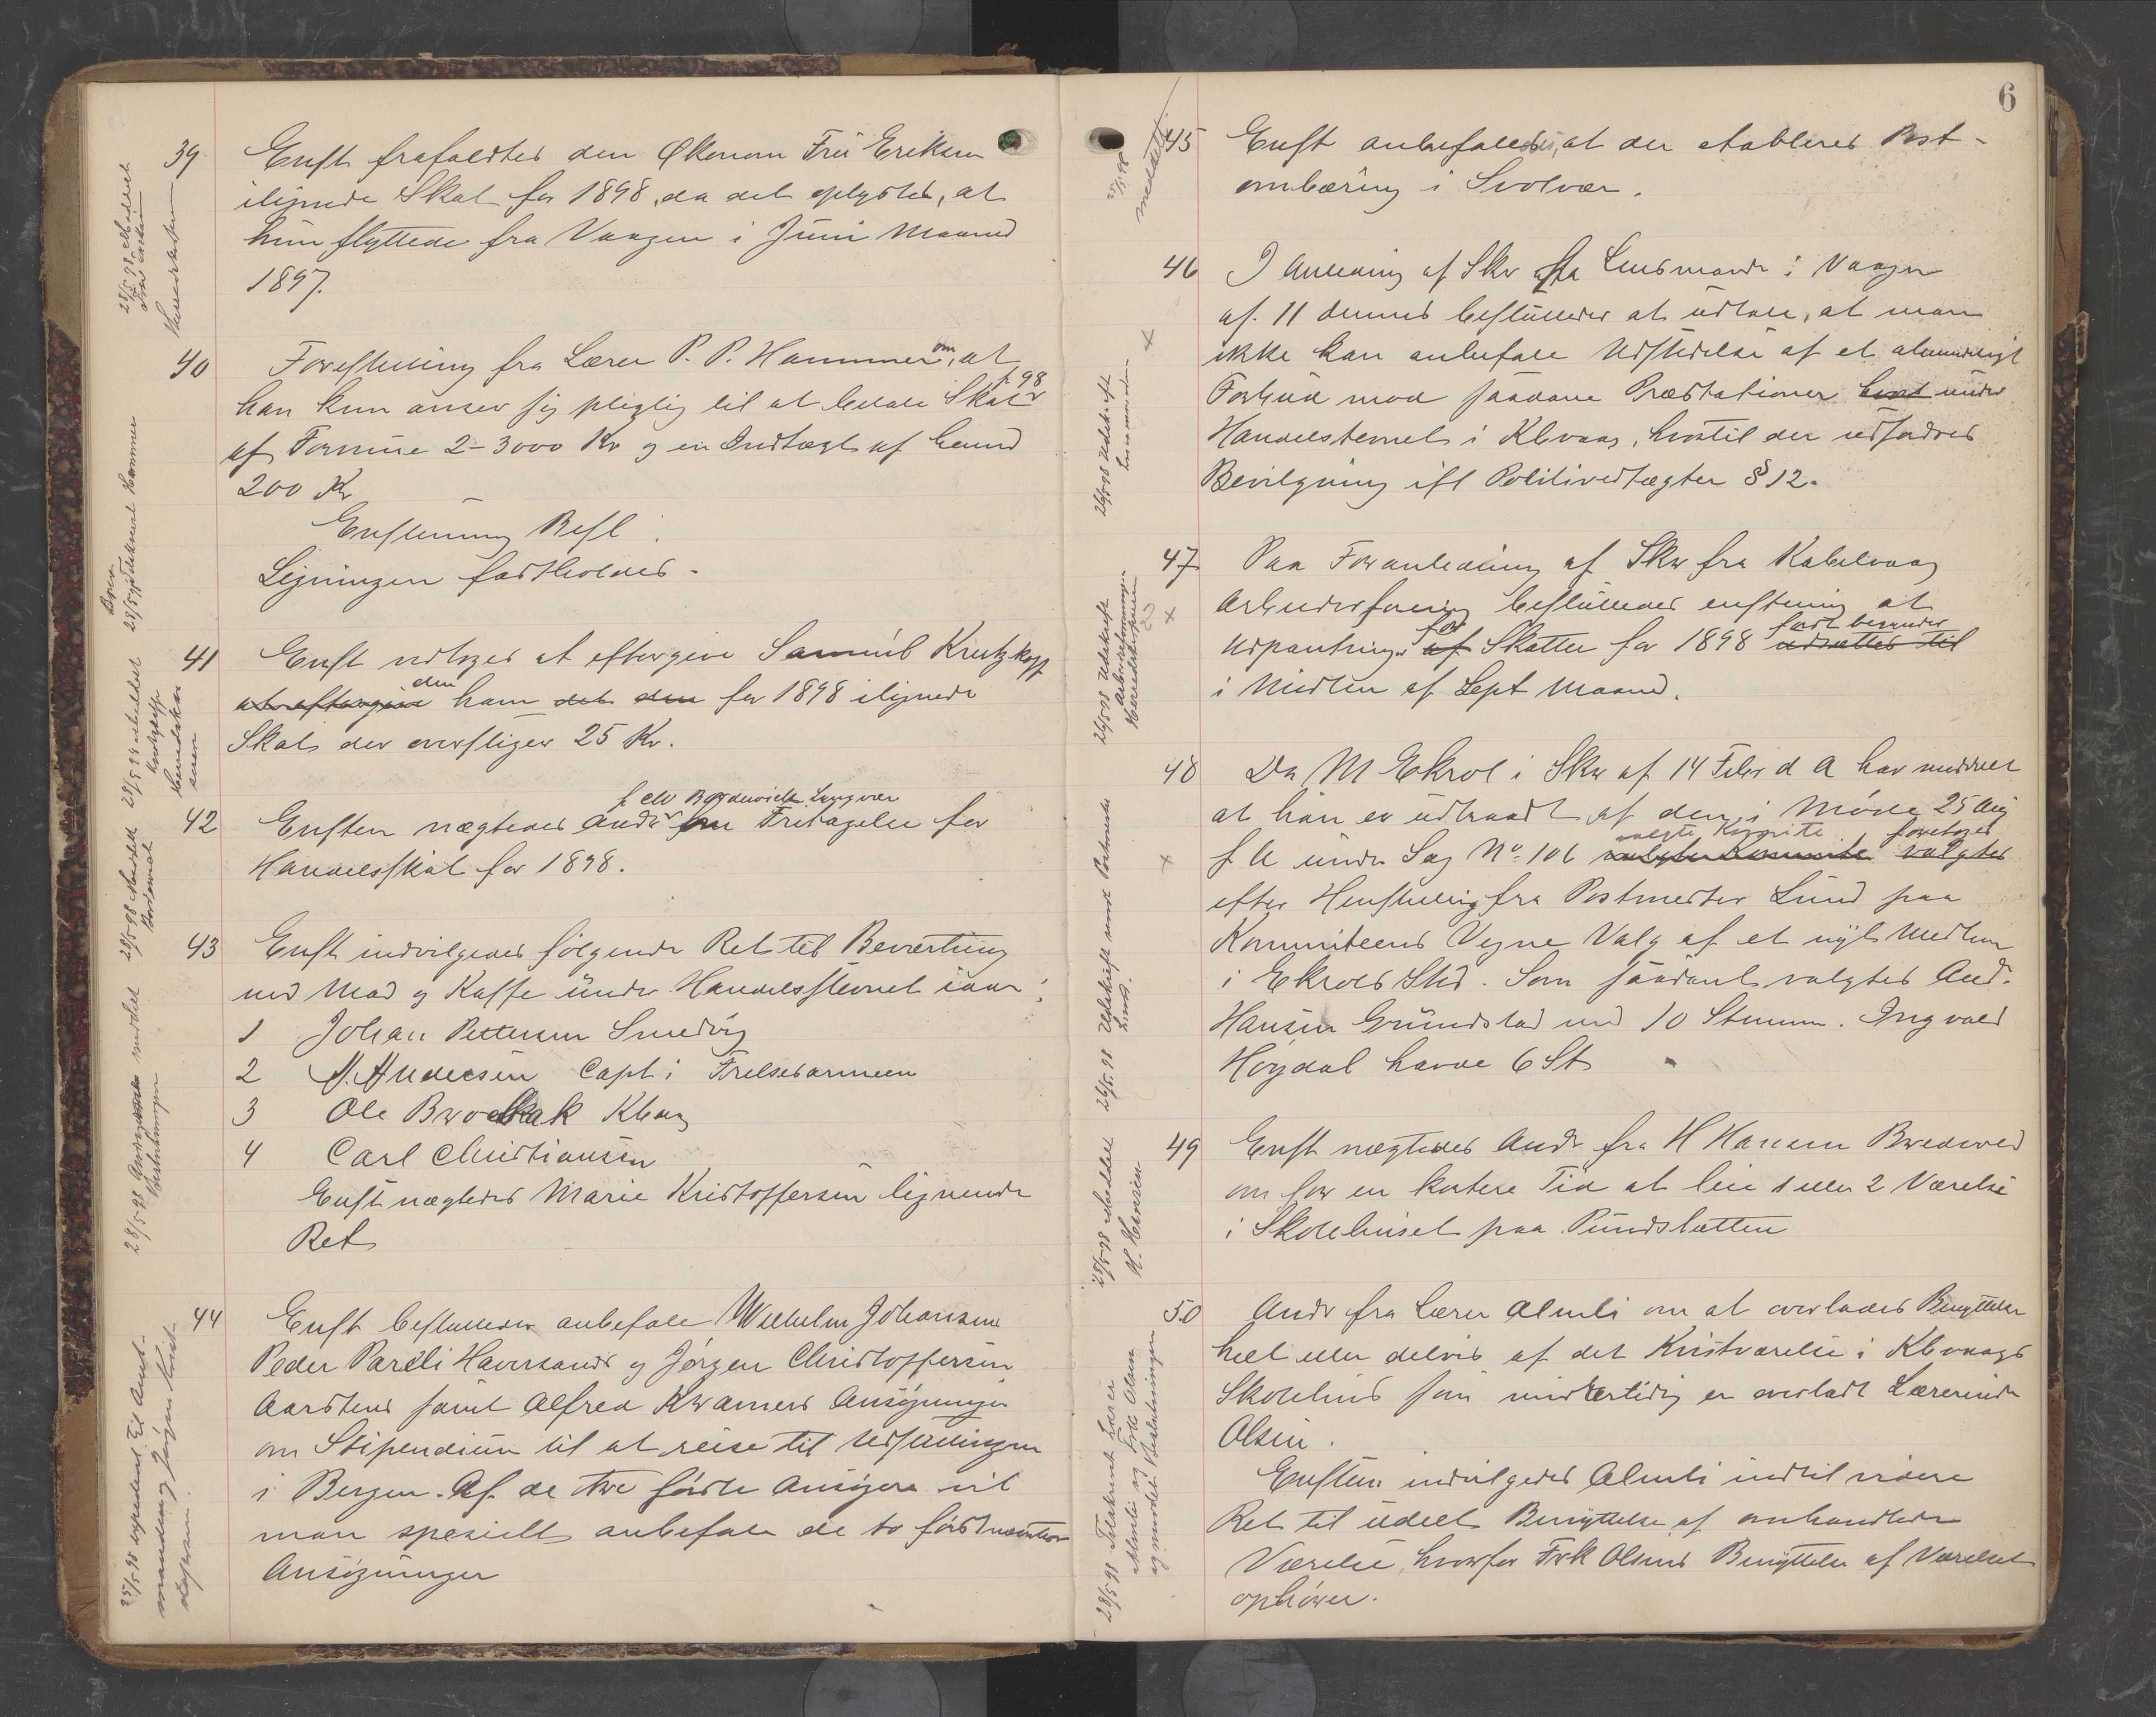 39 Enst frafaldtes den Økonom Fru Eriksen
ilignede Skat for 1898, da det oplystes, at
hun flyttede fra Vaagen i Juni Maaned
1897.
28/5 98 Meddelt
Fru Eriksen
Herredskassereren
40 Forestilling fra Lærer P. P. Hammer om, at
han kun anser sig pligtig til at betale Skat f. 98
af Formue 2-3000 Kr og en Indtægt af
200 Kr
Enstemmig Besl:
Ligningen fastholdes.
28/5 98 Tilskrevet Hammer
41 Enst vedtoges at eftergive Samuel Kreutzkopf
at eftergive den ham det den for 1898 ilignede
Skat der overstiger 25 Kr.
28/5 98 meddelt
Kreutzkopf
Herredskas
seren
f. Bordewick Lyngvær
42 Enstem nægtedes Andr om Fritagelse for
Handelsskat for 1898.
28/5 98 Meddelt
43 Enst indvilgedes følgende Ret til Beværtning
med Mad og Kaffe under Handelsstevnet iaar:
1 Johan Pettersen Smedvig
2 A. Andersen Capt i Frelsesarmeen
3 Ole Brochak Kbvaag
4 Carl Christiansen
Enst nægtedes Marie Kristoffersen lignende
Ret
28/5 98
44 Enst besluttedes anbefale Wilhelm Johansen
Peder Pareli Haversands og Jørgen Christoffersen
Aarstens samt Alfred Kramers Ansøgninger
om Stipendium til at reise til Udstillingen
i Bergen. Af de tre første Ansøgere vil
man specielt anbefale de to førstnævntes
Ansøgninger
25/5 98 expedert til Amt-
manden og Jørgen Krist-
offersen.
6
45 Enst anbefaledes, at der etableres Post-
ombæring i Svolvær.
meddelt
46 I Anledning af Skr fra Lensmanden i Vaagen
af 11 dennes besluttedes at udtale, at man
ikke kan anbefale Udstedelse af et almindeligt
Forbud mod saadane Præstationer under
Handelsstevnet i Kbvaag, hvortil der udfordres
Bevilgning ifl Politivedtægten § 12.
26/5 98 Udskrift
Lensmanden
47 Paa Foranledning af Skr fra Kabelvaag
Arbeiderforening besluttedes enstemig at
Udpantninger af for Skatter for 1898 udsættes til først begynder
i Midten af Sept Maaned.
26/5 98 Udskrift
Arbeiderforeningen
Herredskassereren
48 Da M Ekrol i Skr af 14 Febr d A har meddelt
at han er udtraadt af den i Møde 25 Aug
f A under Sag No 106 valgte Komite foretoges valgtes
efter Henstilling fra Postmester Lund paa
Kommiteens Vegne Valg af et nyt Medlem
i Ekrols Sted. Som saadant valgtes And.
Hansen Grundstad med 10 Stemmer. Ingvald
Høydal havde 6 St
26/5 98 Udskrift sendt Postmester
Lund.
49 Enst nægtedes Andr fra H Hansen Bredewed
om for en kortere Tid at leie 1 eller 2 Værelse
i Skolehuset paa Pundsletten
28/5 98 Meddelt
H. Hansen
50 Andr fra Lærer Almli om at overlades Benyttelse
helt eller delvis af det Kvistværelse i Kbvaags
Skolehus som midlertidig er overladt Lærerinde
Olsen.
Enstem indvilgedes Almli indtil videre
Ret til udelt Benyttelse af omhandlede
Værelse, hvorfor Frk Olsens Benyttelse af Værelset
ophører.
28/5 98 Tilskrevet Lærer
Almli og Frk Olsen